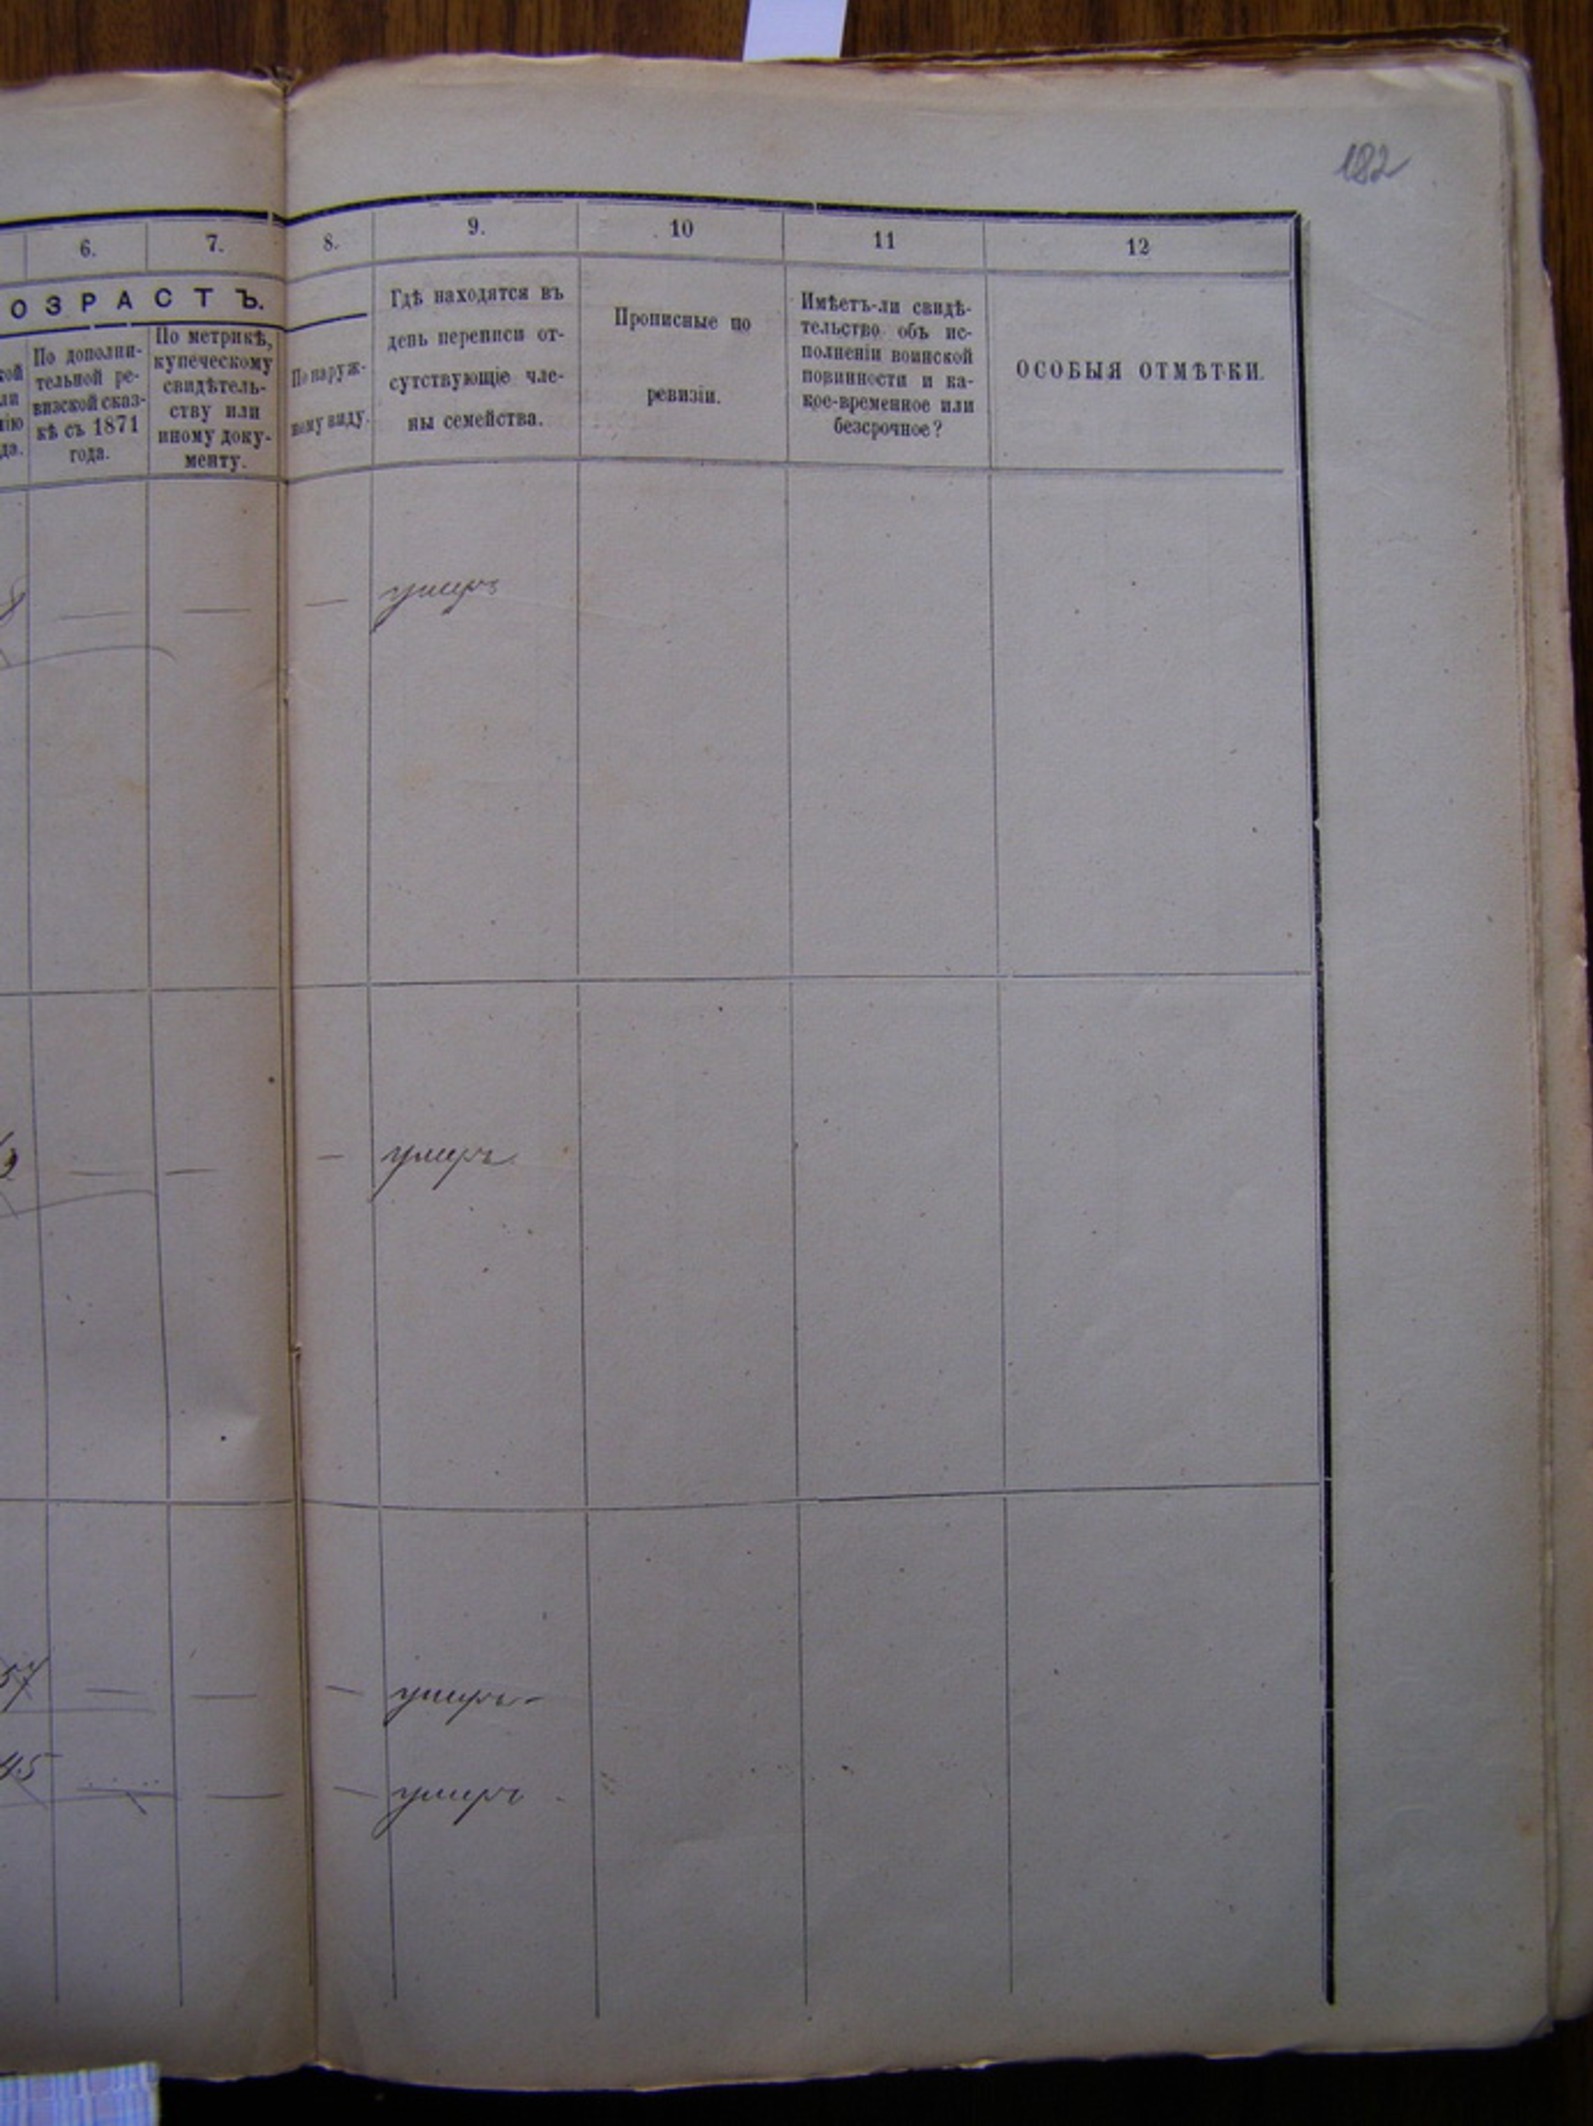 182
6.
7.
8.
9.
10
11
12
ОЗРАСТЪ.
По дополни-
тельной ре-
визской сказ-
кѣ съ 1871
года.
По метрикѣ,
купеческому
свидѣтель-
ству или
иному доку-
менту.
По наруж-
ному виду.
Гдѣ находятся въ
день переписи от-
сутствующіе чле-
ны семейства.
Прописные по
ревизіи.
Имѣетъ-ли свидѣ-
тельство объ ис-
полненіи воинской
повинности и ка-
кое-временное или
безсрочное?
ОСОБЫЯ ОТМѢТКИ.
— — — умеръ
— — — умеръ
57 — — — умеръ
45 — — — умеръ